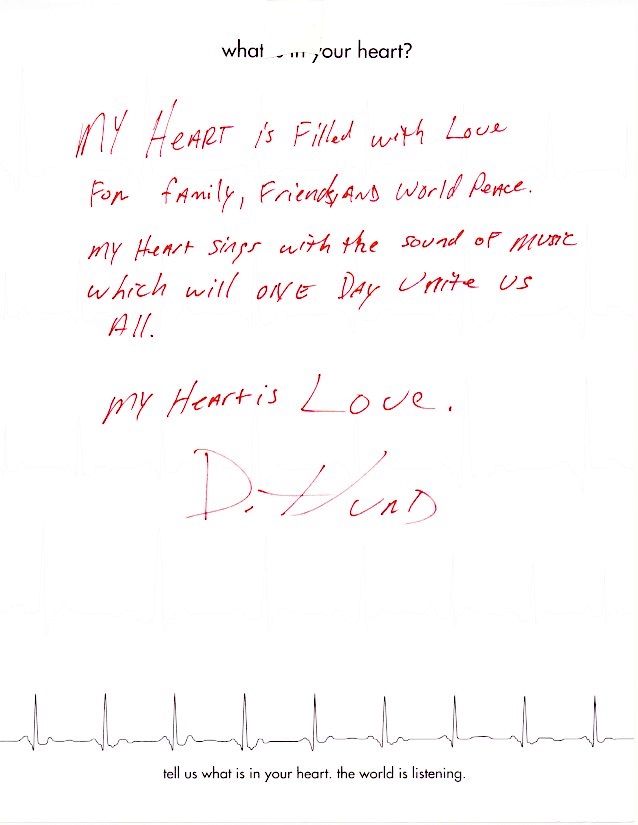 what is in your heart?
My Heart is Filled with Love
For family, Friends, and World Peace.
my Heart sings with the sound of music
which will one Day Unite us
All.
my Heart is Love.
D. Hund
tell us what is in your heart. the world is listening.